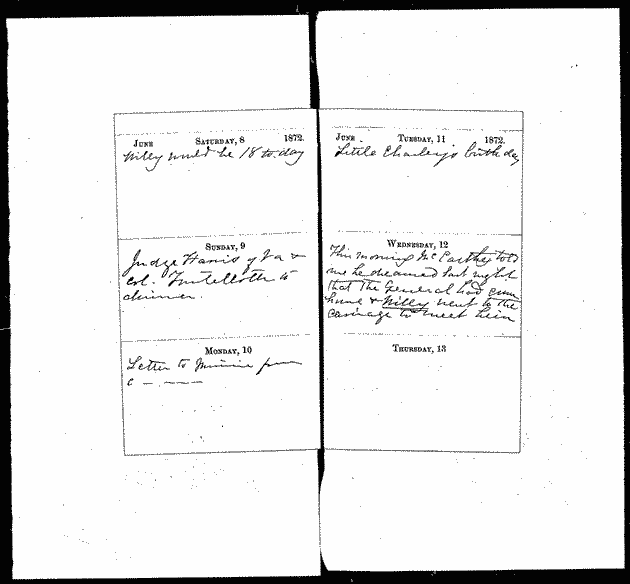 JUNE SATURDAY, 8 1872.
Willy would be 18 to-day
SUNDAY, 9
Judge Harris of Va &
col. to
dinner.
MONDAY, 10
Letter to Minnie from
C — . —
JUNE TUESDAY, 11 1872.
Little Charley's birth day
WEDNESDAY, 12
This morning McCarthy told
me he dreamed last night
that the General had come
home & Willy went to the
carriage to meet him
THURSDAY, 13